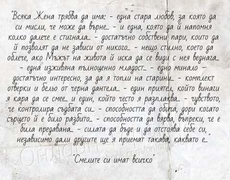 Всяка Жена трябва да има: - една стара любов, за която да
си мисли, че може да върне.. - и една, която да ѝ напомня
колко далече е стигнала.. - достатъчно собствени пари, които да
ѝ позволят да не зависи от никого.. - нещо стилно, което да
облече, ако Мъжът на живота ѝ иска да се види с нея веднага..
- една изживяна пълноценно младост.. - едно минало -
достатъчно интересно, за да я топли на старини.. - комплект
отверки и бельо от черна дантела.. - един приятел, който винаги
я кара да се смее.. и един, който често я разплаква.. - чувството,
че контролира съдбата си.. - способността да обича, дори когато
сърцето ѝ е било разбито.. - способността да вярва, въпреки, че е
била предавана.. - силата да бъде и да отстоява себе си,
независимо дали другите ще я приемат такава, каквато е..
"Смелите си имат всичко